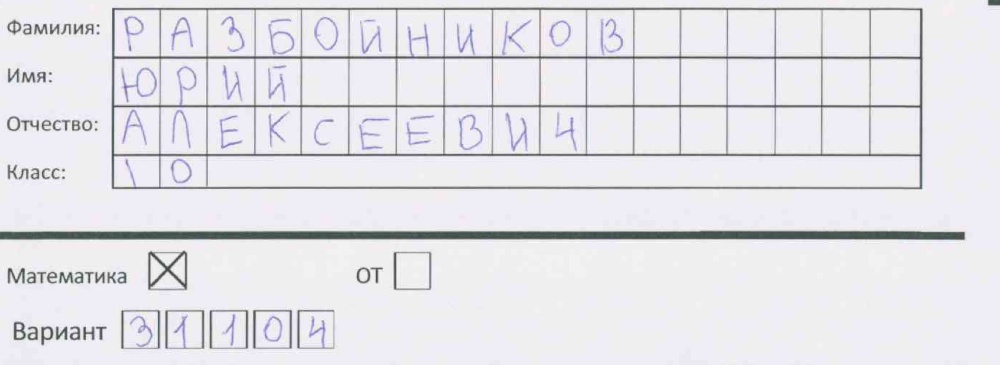 Фамилия: РАЗБОЙНИКОВ
Имя: ЮРИЙ
Отчество: АЛЕКСЕЕВИЧ
Класс: 10
Математика ☒ ОТ ☐
Вариант 31104